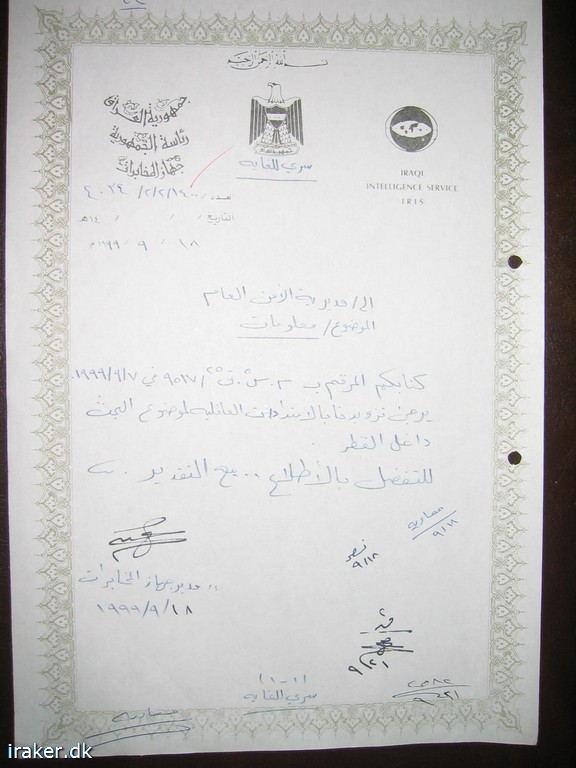 بسم الله الرحمن الرحيم
جمهورية العراق
رئاسة الجمهورية
جهاز المخابرات
سري للغاية
IRAQI
INTELLIGENCE SERVICE
IRIS
العدد /
التاريخ / / ١٤هـ
١٨ / ٩ / ١٩٩٩م
الى/ مديرية الأمن العام
الموضوع/ معلومات
كتابكم المرقم ب ٩٥١٧ في ١٩٩٩/٩/٧.
يرجى تزويدنا بالامتدادات العائلية لموضوع البحث
داخل القطر .
للتفضل بالأطلاع .. مع التقدير .
٩/١٨
نصير
٩/١٨
مدير جهاز المخابرات
١٩٩٩/٩/١٨
٩/٢١
٩/٢١
(١-١)
سري للغاية
iraker.dk